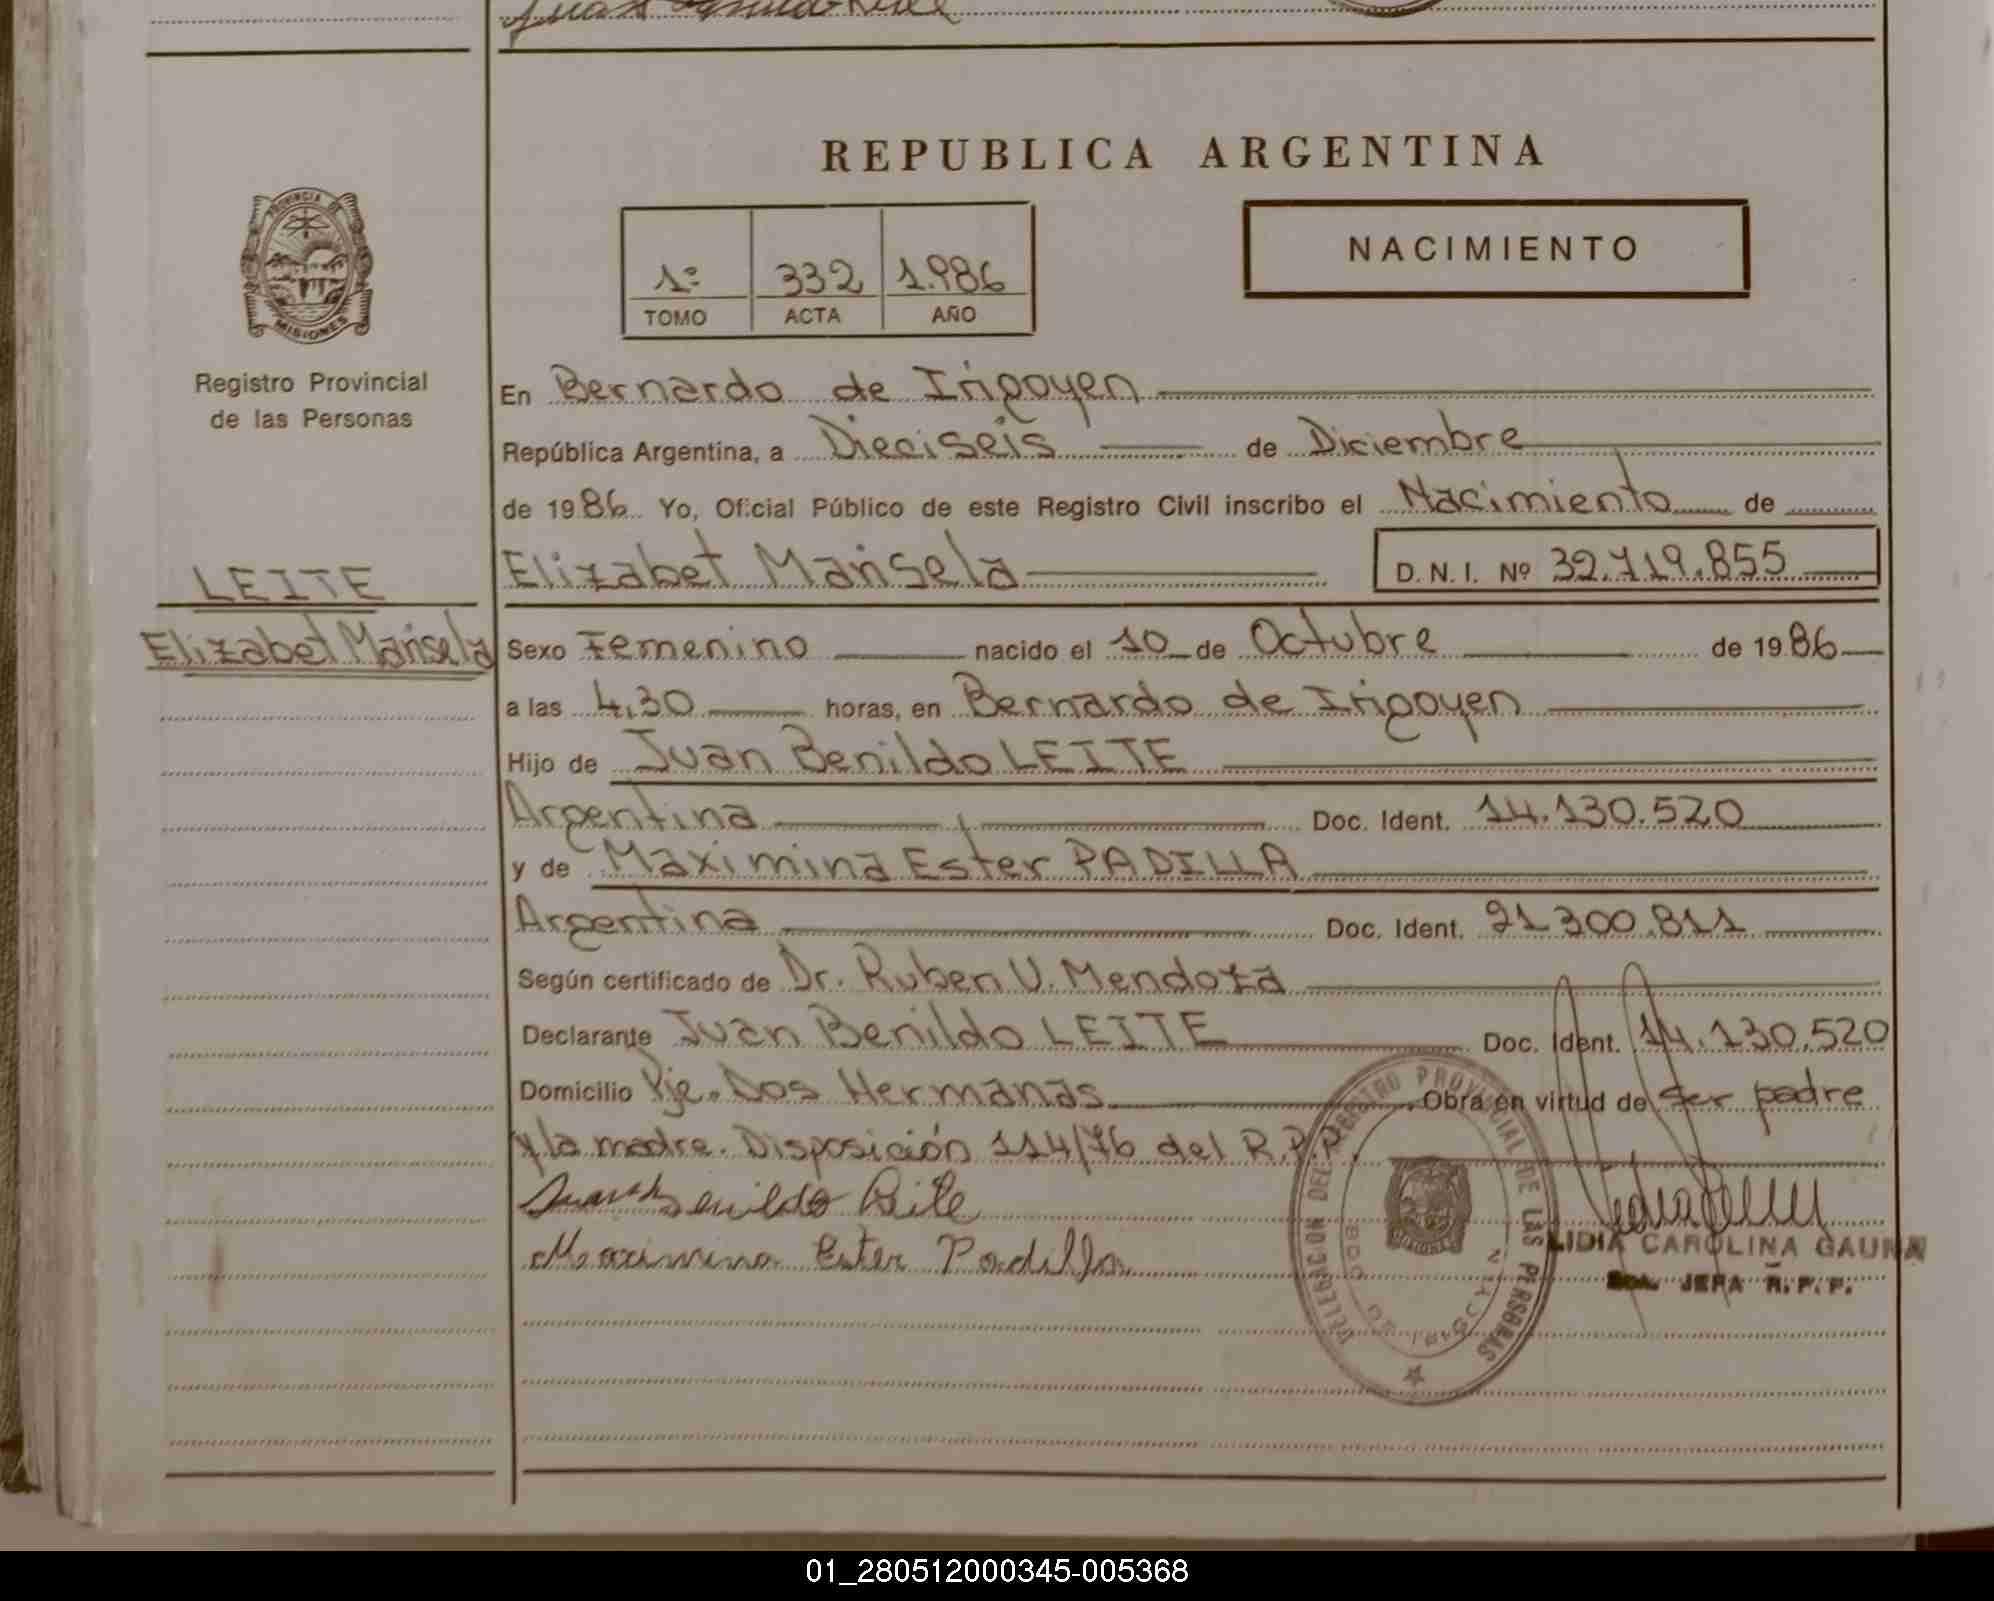 REPUBLICA ARGENTINA
PROVINCIA DE
MISIONES
Registro Provincial
de las Personas
1º 332 1.986
TOMO ACTA AÑO
NACIMIENTO
En Bernardo de Irigoyen
República Argentina, a Dieciseis de Diciembre
de 1986 Yo, Oficial Público de este Registro Civil inscribo el Nacimiento de
Elizabet Marisela D.N.I. Nº 32.719.855
LEITE
Elizabet Marisela
Sexo Femenino nacido el 10 de Octubre de 1986
a las 4,30 horas, en Bernardo de Irigoyen
Hijo de Juan Benildo LEITE
Argentina Doc. Ident. 14.130.520
y de Maximina Ester PADILLA
Argentina Doc. Ident. 21.300.811
Según certificado de Dr. Ruben U. Mendoza
Declarante Juan Benildo LEITE Doc. Ident. 14.130.520
Domicilio Pje. Dos Hermanas Obra en virtud de ser padre
y la madre. Disposición 114/76 del R.P.P.
Juan Benildo Leite
Maximina Ester Padilla
DELEGACION DEL REGISTRO PROVINCIAL DE LAS PERSONAS
LIDIA CAROLINA GAUNA
JEFA R.P.P.
01_280512000345-005368